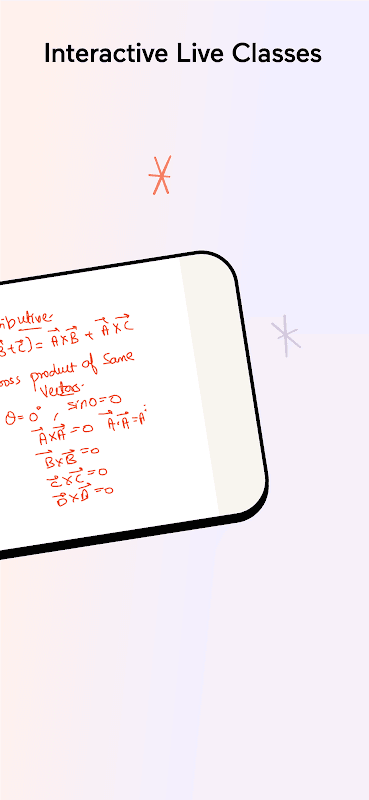 Interactive Live Classes
ibutive
B⃗+C⃗) = A⃗×B⃗ + A⃗×C⃗
oss product of Same
Vectors.
θ=0°, sin0=0
A⃗×A⃗=0 A⃗·A⃗=A²
B⃗×B⃗=0
C⃗×C⃗=0